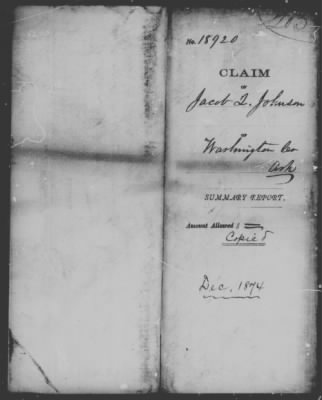 No. 18920
CLAIM
OF
Jacob Q. Johnson
OF
Washington Co
Ark
SUMMARY REPORT.
Amount Allowed $ =
Copied
Dec. 1874